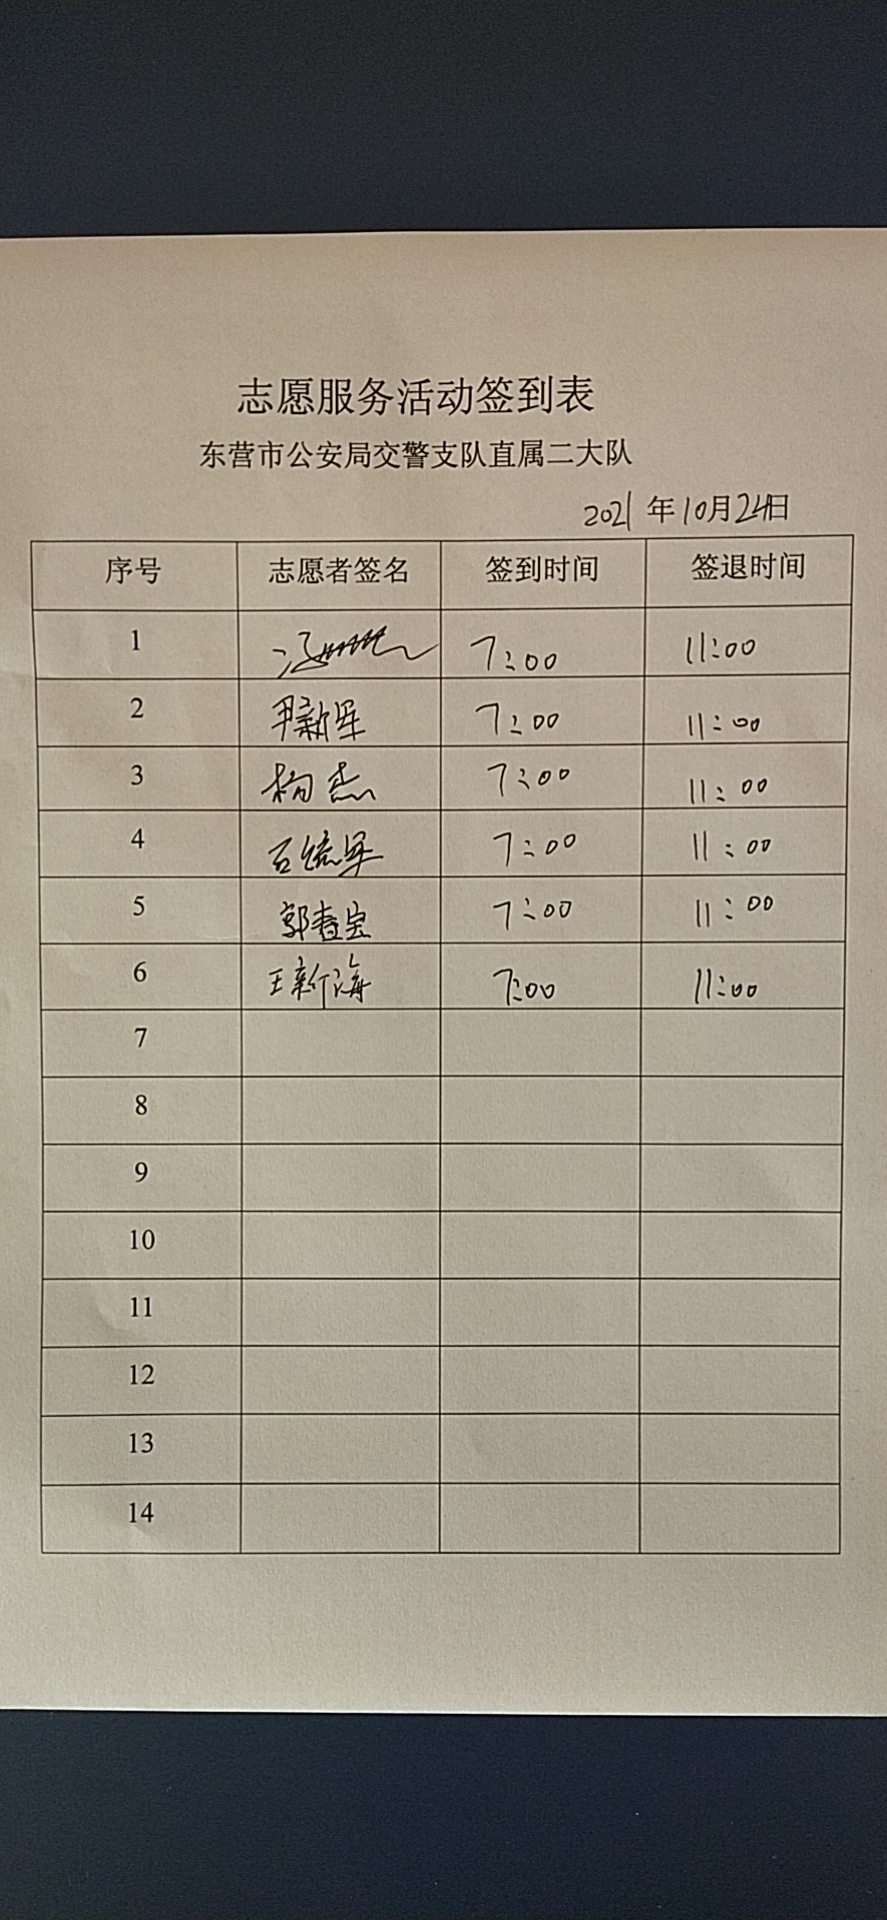 志愿服务活动签到表
东营市公安局交警支队直属二大队
2021年10月24日
序号 志愿者签名 签到时间 签退时间
1 7:00 11:00
2 尹新军 7:00 11:00
3 杨杰 7:00 11:00
4 石 军 7:00 11:00
5 郭春宝 7:00 11:00
6 王新海 7:00 11:00
7
8
9
10
11
12
13
14